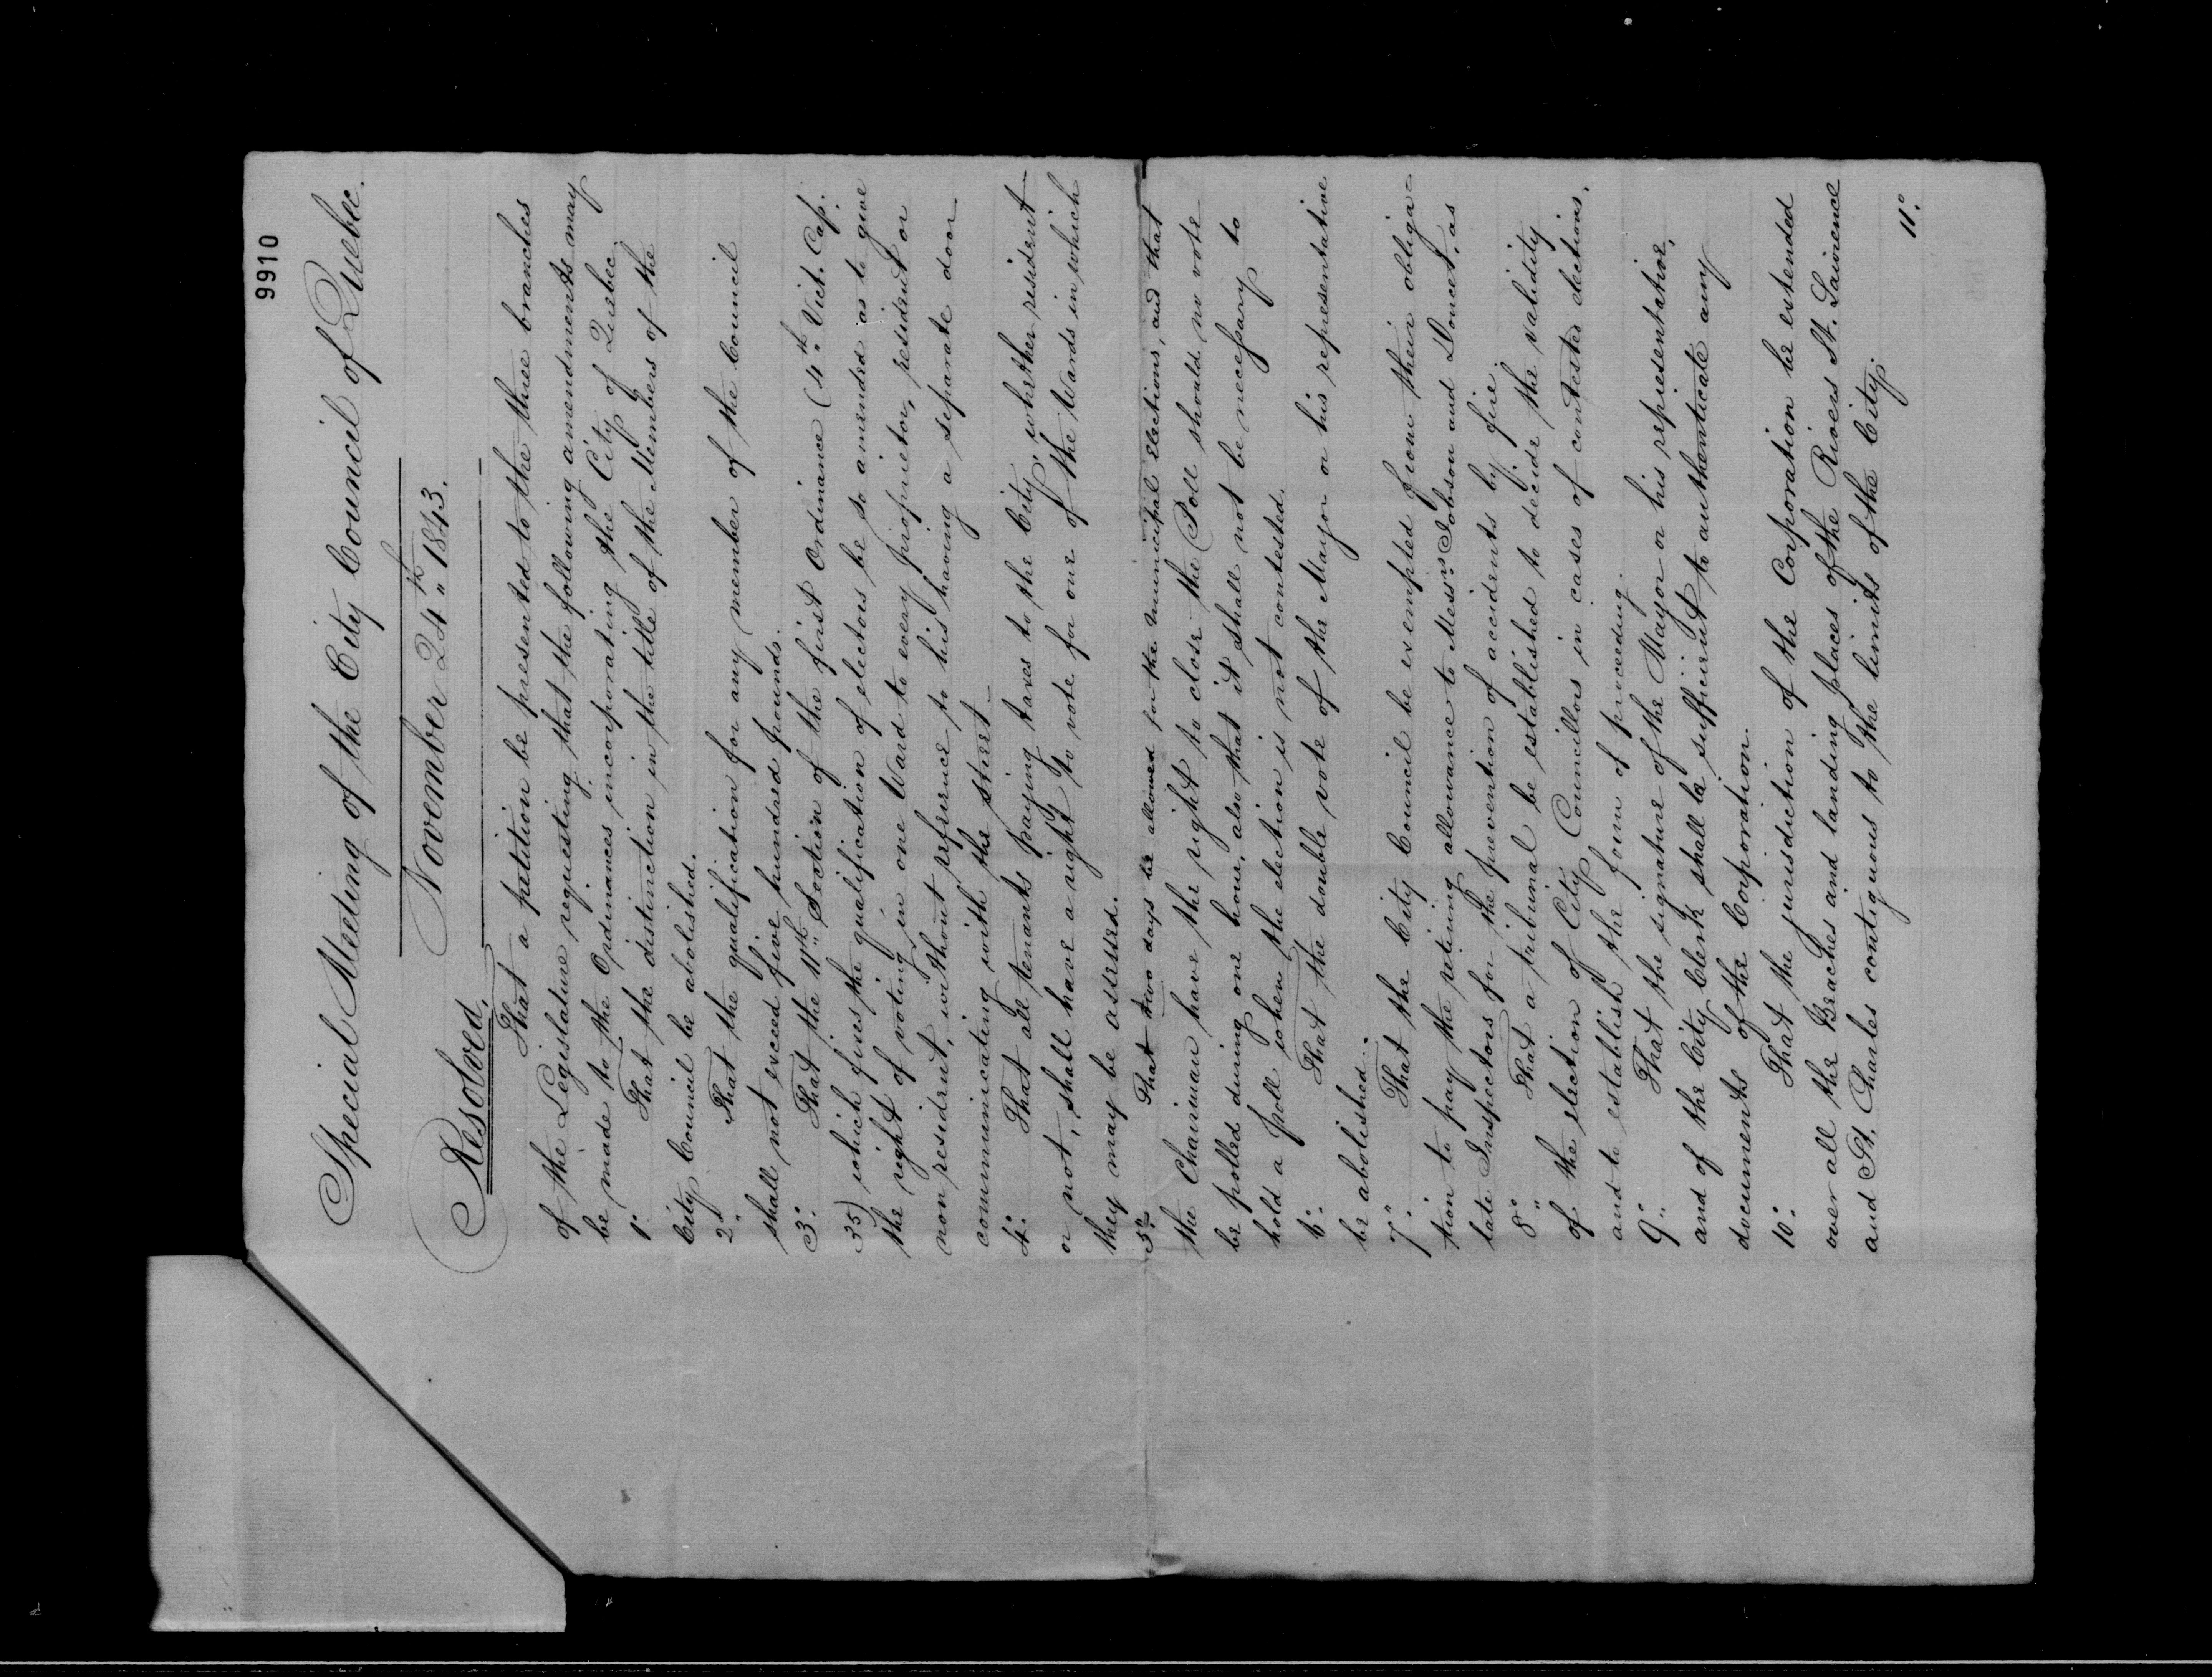 9910
Special Meeting of the City Council of Quebec.
November 24th 1843.
Resolved,
That a petition be presented to the three branches
of the Legislature requesting that the following amendments may
be made to the Ordinances incorporating the City of Quebec.
1o. That the distinction in the title of the Members of the
City Council be abolished.
2o. That the qualification for any member of the Council
shall not exceed five hundred pounds.
3o. That the 11th Section of the first Ordinance (4th Vict. Cap.
35) which fixes the qualification of electors be so amended as to give
the right of voting in one Ward to every proprietor, resident or
non resident, without reference to his having a separate door
communicating with the street.
4o. That all tenants paying taxes to the City, whether resident
or not, shall have a right to vote for one of the Wards in which
they may be assessed.
5o. That two days be allowed for the municipal elections, and that
the Chairman have the right to close the Poll should no vote
be polled during one hour, also that it shall not be necessary to
hold a poll when the election is not contested.
6o. That the double vote of the Mayor or his representative
be abolished.
7o. That the City Council be exempted from their obliga=
tion to pay the retiring allowance to Messrs. Jobson and Doucet, as
late Inspectors for the prevention of accidents by fire.
8o. That a tribunal be established to decide the validity
of the election of City Councillors in cases of contested elections,
and to establish the form of proceeding.
9o. That the signature of the Mayor or his representative,
and of the City Clerk shall be sufficient to authenticate any
documents of the Corporation.
10o. That the jurisdiction of the Corporation be extended
over all the Beaches and landing places of the Rivers St. Lawrence
and St. Charles contiguous to the limits of the City.
11o.